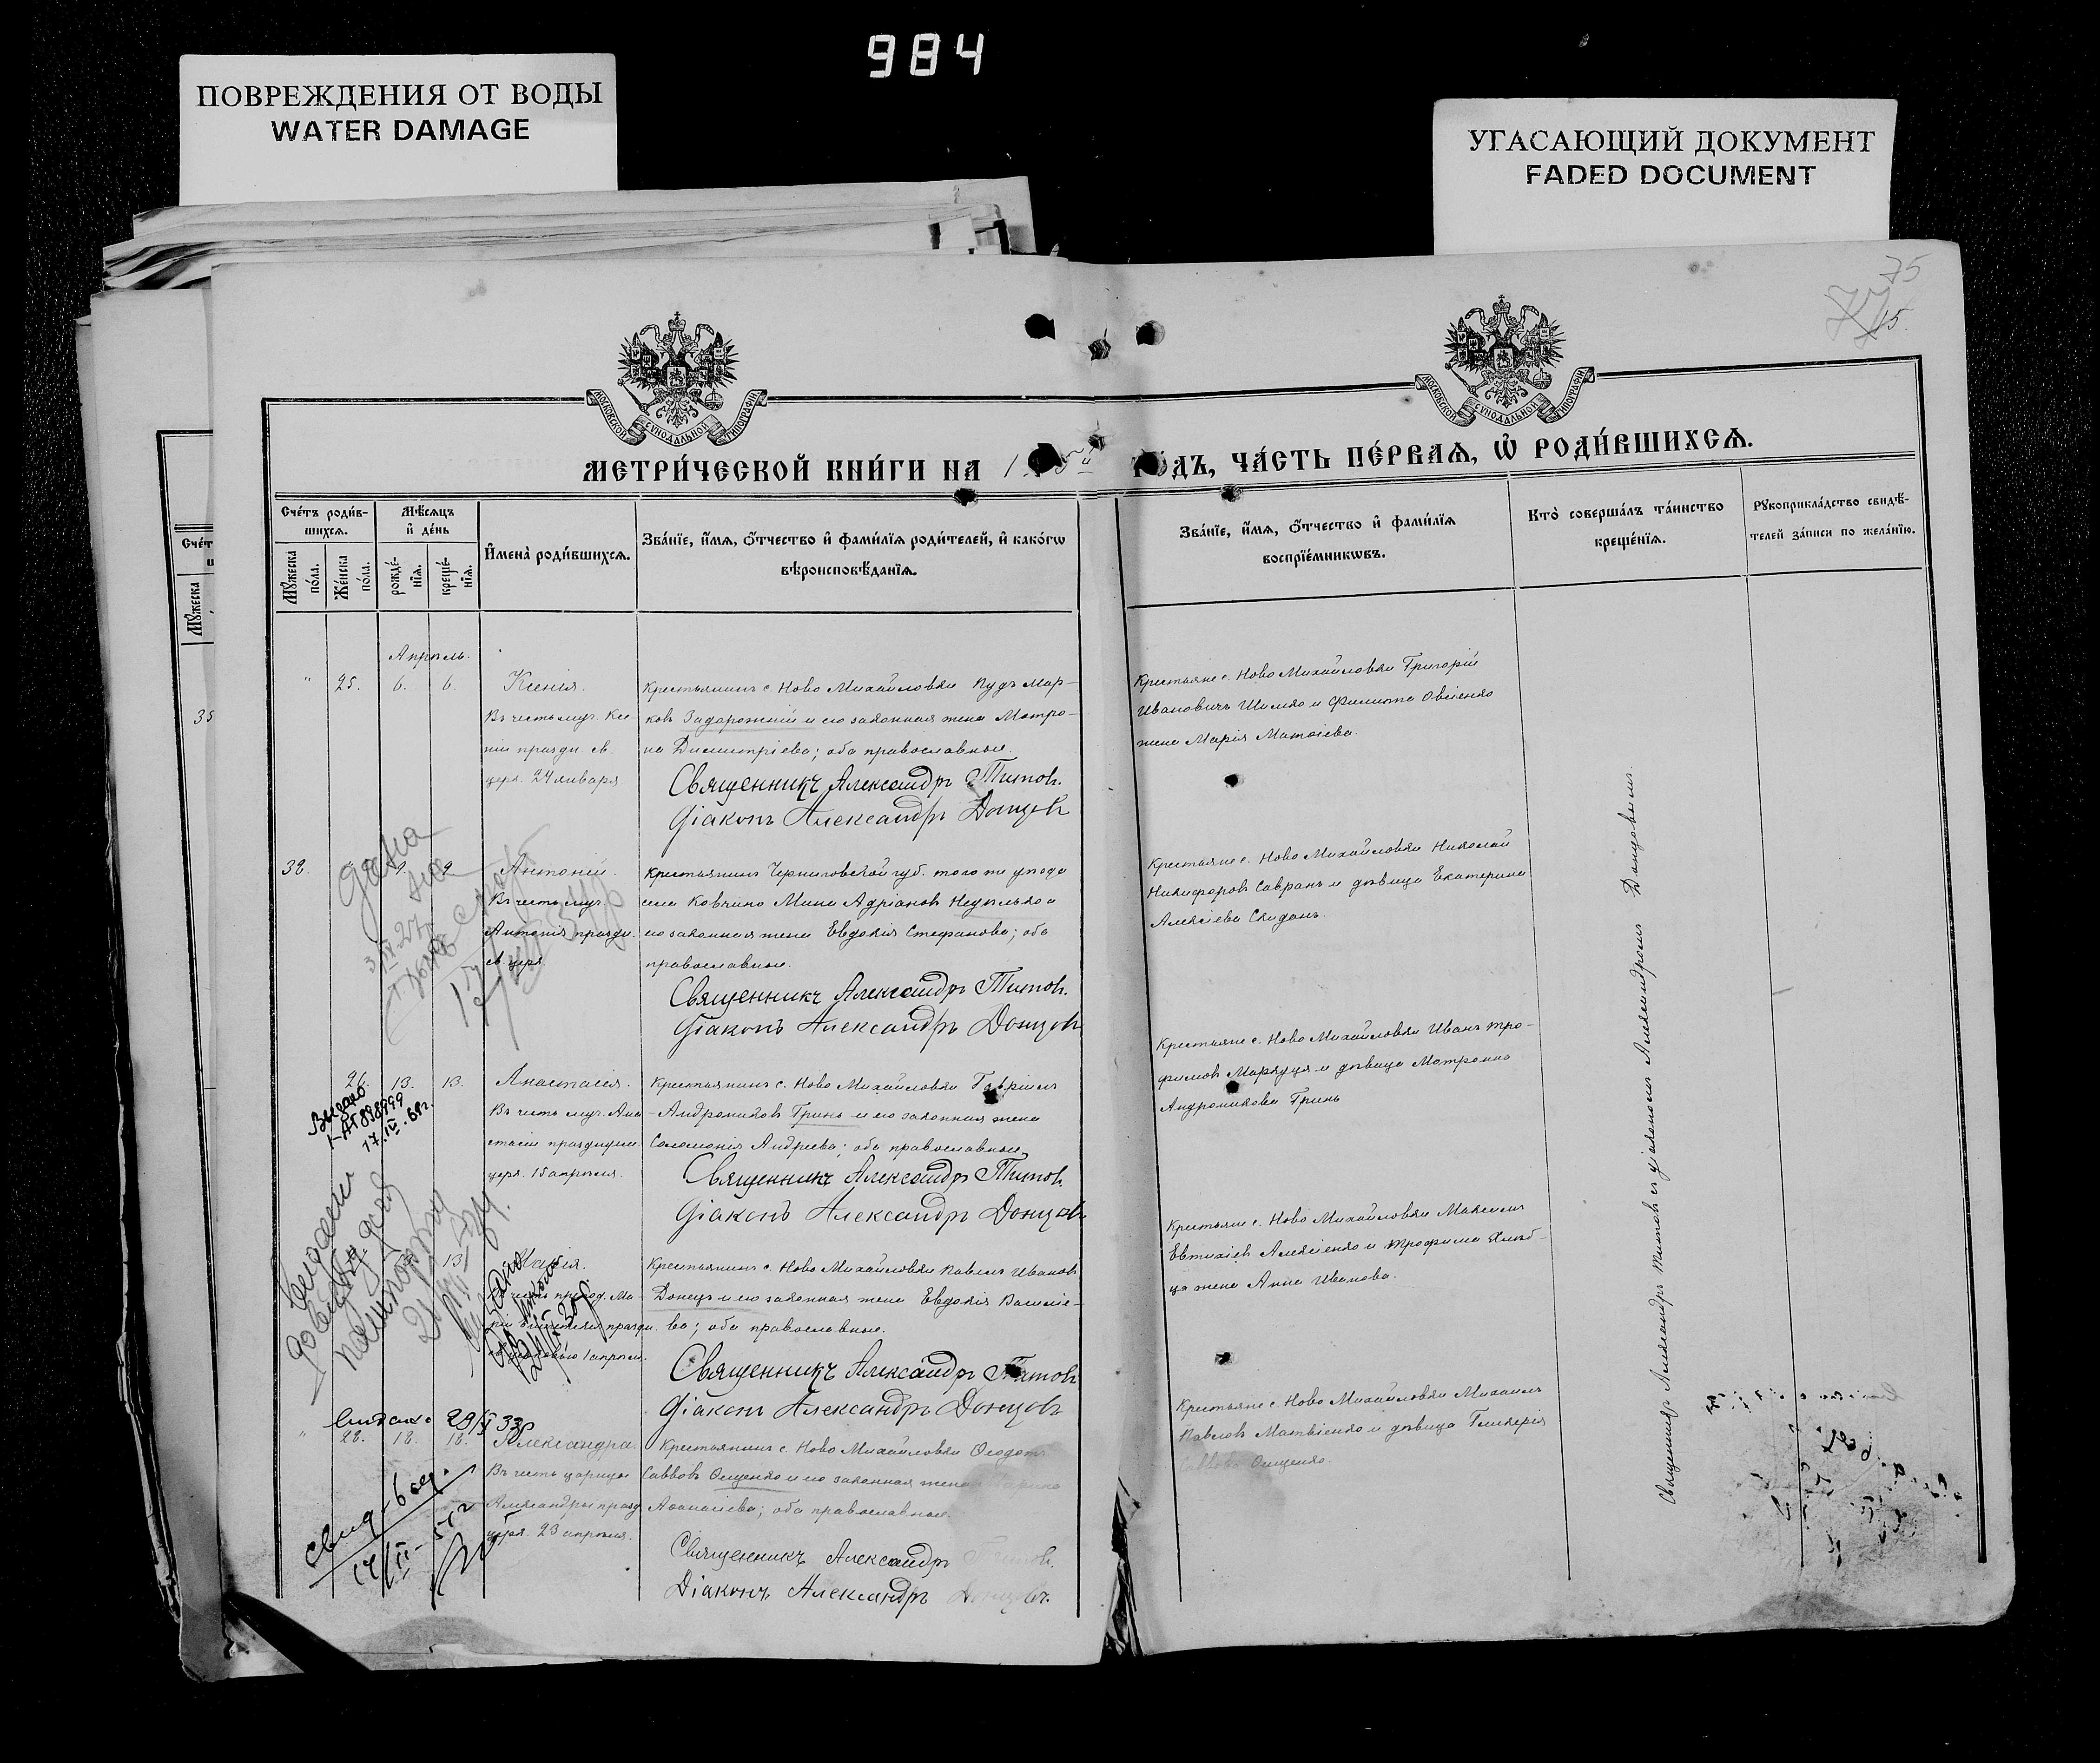 984
ПОВРЕЖДЕНИЯ ОТ ВОДЫ
WATER DAMAGE
УГАСАЮЩИЙ ДОКУМЕНТ
FADED DOCUMENT
75
15.
МОСКОВСКОЙ СѴНОДАЛЬНОЙ ТИПОГРАФІИ
МОСКОВСКОЙ СѴНОДАЛЬНОЙ ТИПОГРАФІИ
МЕТРИ́ЧЕСКОЙ КНИ́ГИ НА 1 5й ГО́ДЪ, ЧА́СТЬ ПЕ́РВАѦ, Ѡ҆ РОДИ́ВШИХСѦ.
Сче́тъ роди́в-
шихсѧ.
Мѣ́сѧцъ
и҆ де́нь
Мꙋ́жеска по́ла.
Же́нска по́ла.
рожде́-
нїѧ.
креще́-
нїѧ.
И҆мена̀ роди́вшихсѧ.
Зва́нїе, и҆́мѧ, ѻ҆́тчество и҆ фами́лїѧ роди́телей, и҆ како́гѡ
вѣроисповѣ́данїѧ.
Зва́нїе, и҆́мѧ, ѻ҆́тчество и҆ фами́лїѧ
воспрїе́мникѡвъ.
Кто̀ соверша́лъ та́инство
креще́нїѧ.
Рꙋкоприкла́дство свидѣ́-
телей за́писи по жела́нїю.
Сче́т
Мꙋ́жеска
35
Апрѣль.
" 25. 6. 6. Ксенія.
Въ честь муч. Ксе-
ніи праздн. св.
церк. 24 января
Крестьянинъ с. Ново Михайловки Иудъ Мар-
ковъ Задорожній и его законная жена Матро-
на Димитріева; оба православные.
Священникъ Александръ Титовъ.
Діаконъ Александръ Донцовъ
Крестьяне с. Ново Михайловки Григорій
Ивановичъ Шимко и Филиппа Овсіенко
жена Марія Матѳіева.
38. 9. 9 Антоній.
Въ честь муч.
Антонія праздн.
св. церк.
Крестьянинъ Черниговской губ. того же уѣзда
села Ковчина Мина Адріановъ Недилько и
его законная жена Евдокія Стефанова; оба
православные.
Священникъ Александръ Титовъ.
Діаконъ Александръ Донцовъ
Крестьяне с. Ново Михайловки Николай
Никифоровъ Савранъ и дѣвица Екатерина
Алексіева Скиданъ.
26. 13. 13. Анастасія.
Въ честь муч. Ана-
стасіи празднуем.
церк. 15 апрѣля.
Крестьянинъ с. Ново Михайловки Гавріилъ
Андрониковъ Гринь и его законная жена
Соломонія Андреева; оба православные.
Священникъ Александръ Титовъ.
Діаконъ Александръ Донцовъ
Крестьяне с. Ново Михайловки Иванъ Тро-
фимовъ Маркуця и дѣвица Матрона
Андроникова Гринь
Выдано
I-АП 898999
17.IV.69г.
13 Марія.
Въ честь препод. Ма-
ріи Египетскія праздн.
св. церковью 1 апрѣля.
Крестьянинъ с. Ново Михайловки Павелъ Ивановъ
Донецъ и его законная жена Евдокія Василіе-
ва; оба православные.
Священникъ Александръ Титовъ
Діаконъ Александръ Донцовъ
Крестьяне с. Ново Михайловки Максимъ
Евтихіевъ Алексіенко и Трофима Хлѣб-
ца жена Анна Иванова.
Выдано 29/X 33р
" 28. 18. 18. Александра.
Въ честь царицы
Александры празд.
церк. 23 апрѣля.
Крестьянинъ с. Ново Михайловки Ѳеодотъ
Саввовъ Ѳощенко и его законная жена Марина
Аѳанасіева; оба православные.
Священникъ Александръ Титовъ.
Діаконъ Александръ Донцовъ.
Крестьяне с. Ново Михайловки Михаилъ
Павловъ Матвіенко и дѣвица Гликерія
Саввова Ѳощенко.
Священникъ Александръ Титовъ съ діакономъ Александромъ Донцовымъ.